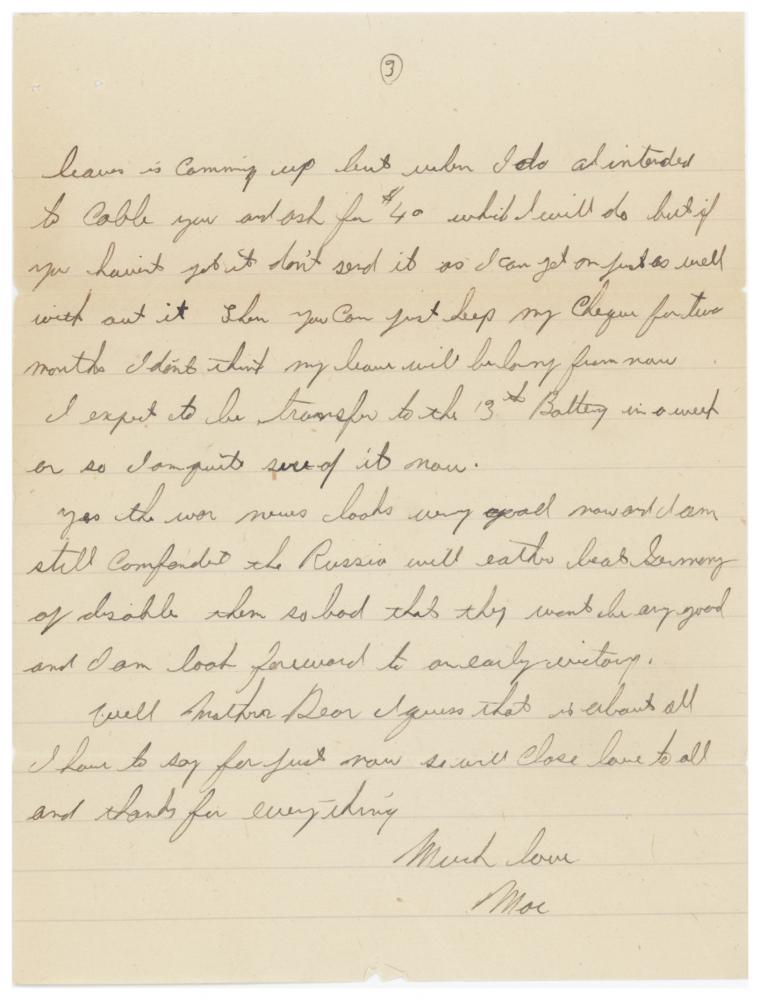 3
leave is comming up but when I do I intended
to Cable you and ask for $40 which I will do but if
you havint got it don't send it as I can get on just as well
with out it then you can just keep my Cheque for two
months I don't think my leave will be long from now
I expect to be transfer to the 13th Battery in a week
or so I am quite sure of it now.
yes the war news looks very good now and I am
still Comfendet the Russia will eather beat Germany
of disable them so bad that they wont be any good
and I am look foreward to an early victory.
Well Mother Dear I guess that is about all
I have to say for just now so will Close love to all
and thanks for everything
Much love
Moe